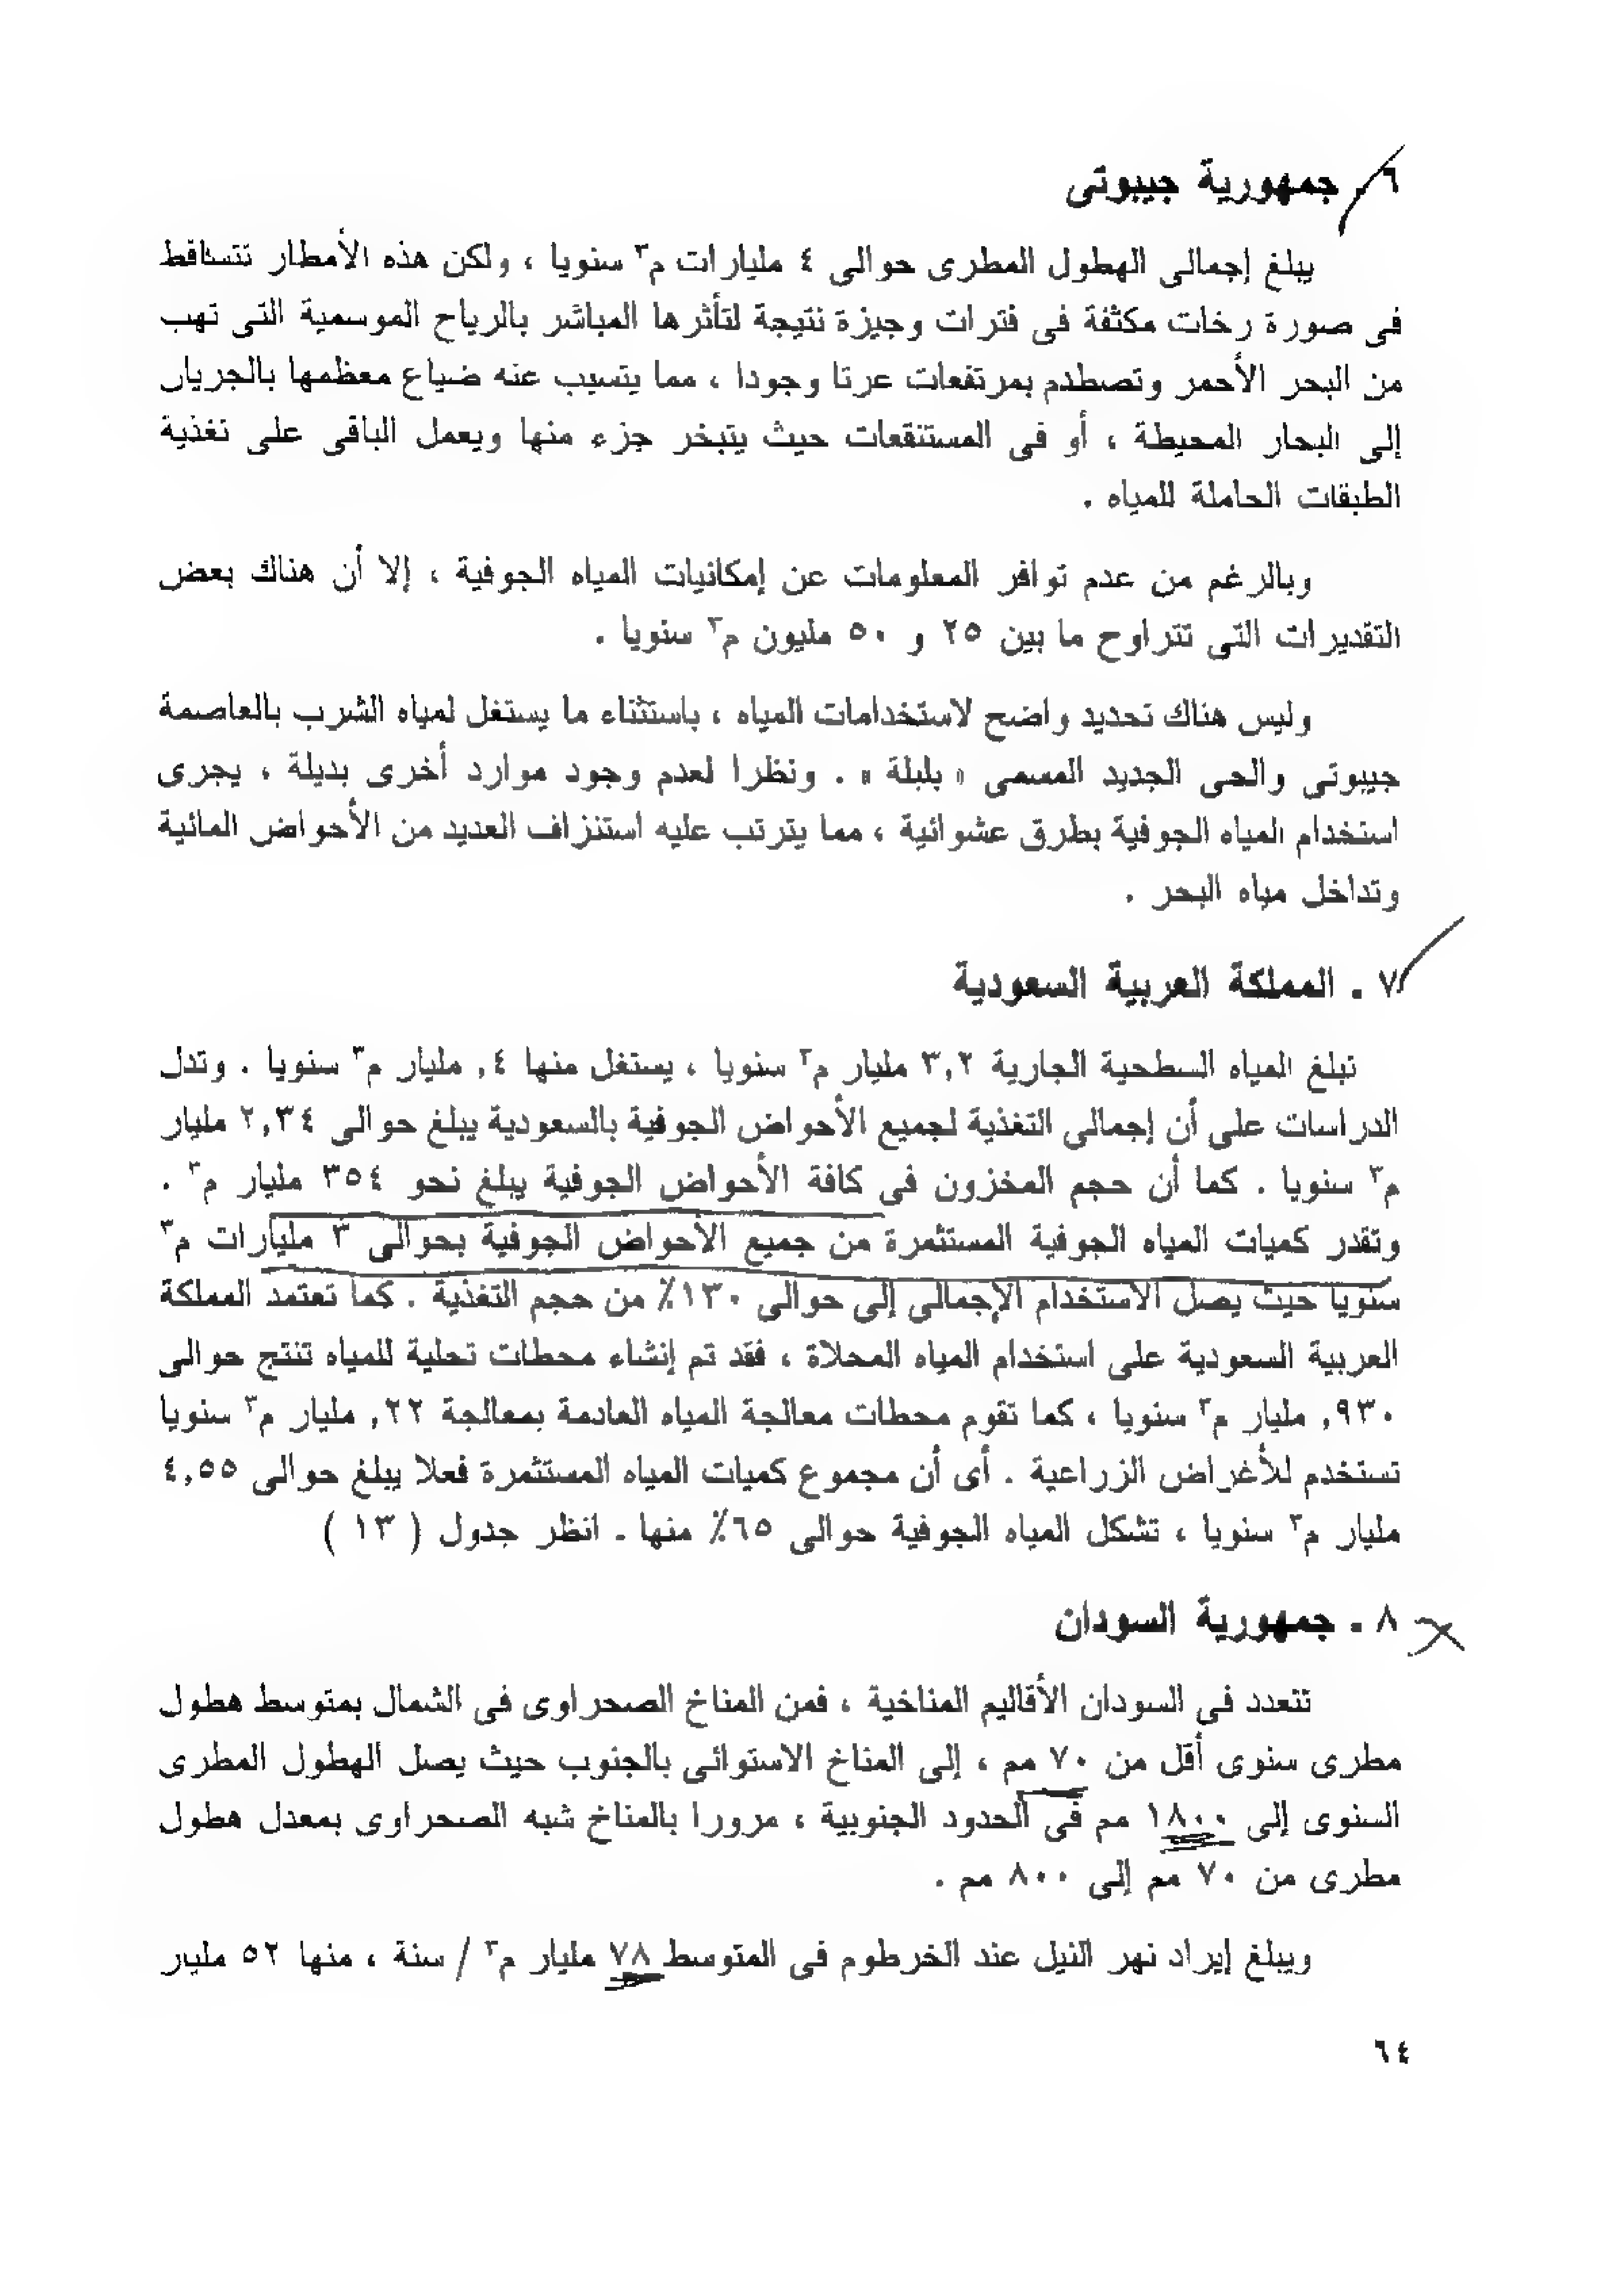 ٦ . جمهورية جيبوتى
يبلغ إجمالى الهطول المطرى حوالى ٤ مليارات م٣ سنويا ، ولكن هذه الأمطار تتساقط
فى صورة رخات مكثفة فى فترات وجيزة نتيجة لتأثرها المباشر بالرياح الموسمية التى تهب
من البحر الأحمر وتصطدم بمرتفعات عرتا وجودا ، مما يتسبب عنه ضياع معظمها بالجريان
إلى البحار المحيطة ، أو فى المستنقعات حيث يتبخر جزء منها ويعمل الباقى على تغذية
الطبقات الحاملة للمياه .
وبالرغم من عدم توافر المعلومات عن إمكانيات المياه الجوفية ، إلا أن هناك بعض
التقديرات التى تتراوح ما بين ٢٥ و ٥٠ مليون م٣ سنويا .
وليس هناك تحديد واضح لاستخدامات المياه ، باستثناء ما يستغل لمياه الشرب بالعاصمة
جيبوتى والحى الجديد المسمى « بلبلة » . ونظرا لعدم وجود موارد أخرى بديلة ، يجرى
استخدام المياه الجوفية بطرق عشوائية ، مما يترتب عليه استنزاف العديد من الأحواض المائية
وتداخل مياه البحر .
٧ . المملكة العربية السعودية
تبلغ المياه السطحية الجارية ٣,٢ مليار م٣ سنويا ، يستغل منها ٤, مليار م٣ سنويا . وتدل
الدراسات على أن إجمالى التغذية لجميع الأحواض الجوفية بالسعودية يبلغ حوالى ٢,٣٤ مليار
م٣ سنويا . كما أن حجم المخزون فى كافة الأحواض الجوفية يبلغ نحو ٣٥٤ مليار م٣ .
وتقدر كميات المياه الجوفية المستثمرة من جميع الأحواض الجوفية بحوالى ٣ مليارات م٣
سنويا حيث يصل الاستخدام الإجمالى إلى حوالى ١٣٠٪ من حجم التغذية . كما تعتمد المملكة
العربية السعودية على استخدام المياه المحلاة ، فقد تم إنشاء محطات تحلية للمياه تنتج حوالى
٩٣٠, مليار م٣ سنويا ، كما تقوم محطات معالجة المياه العادمة بمعالجة ٢٢, مليار م٣ سنويا
تستخدم للأغراض الزراعية . أى أن مجموع كميات المياه المستثمرة فعلا يبلغ حوالى ٤,٥٥
مليار م٣ سنويا ، تشكل المياه الجوفية حوالى ٦٥٪ منها . انظر جدول ( ١٣ )
٨ . جمهورية السودان
تتعدد فى السودان الأقاليم المناخية ، فمن المناخ الصحراوى فى الشمال بمتوسط هطول
مطرى سنوى أقل من ٧٠ مم ، إلى المناخ الاستوائى بالجنوب حيث يصل الهطول المطرى
السنوى إلى ١٨٠٠ مم فى الحدود الجنوبية ، مرورا بالمناخ شبه الصحراوى بمعدل هطول
مطرى من ٧٠ مم إلى ٨٠٠ مم .
ويبلغ إيراد نهر النيل عند الخرطوم فى المتوسط ٧٨ مليار م٣ / سنة ، منها ٥٢ مليار
٦٤